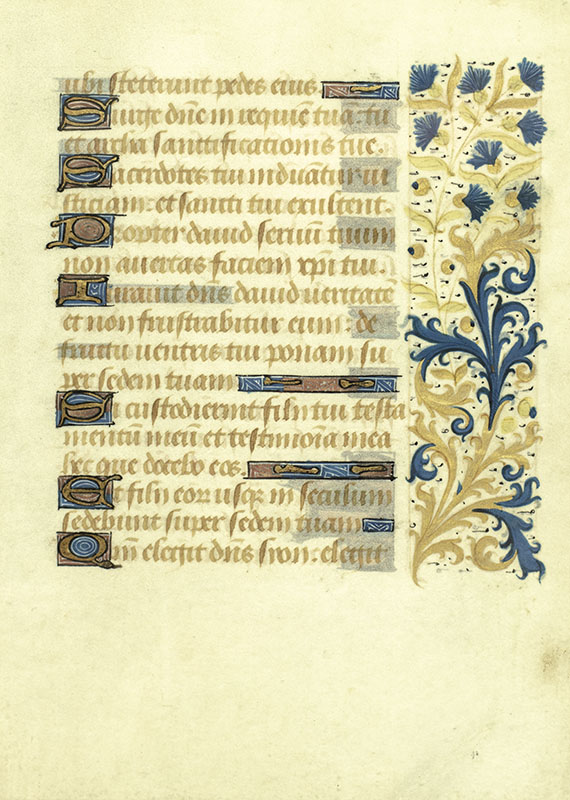 ubi steterunt pedes eius.
Surge dñe in requiē tuā. tu
et archa sanctificationis tue.
Sacerdotes tui induātur iu
sticiam: et sancti tui exultent.
Propter dauid seruum tuum
non auertas faciem xp̄i tui.
Iurauit dñs dauid ueritatē
et non frustrabitur eum: de
fructu uentris tui ponam su
per sedem tuam
Si custodierint filii tui testa
mentū meū et testimōia mea
hec que docebo eos.
Et filii eorū usqꝫ in seculum
sedebunt super sedem tuam
Qm̄ elegit dñs sion: elegit